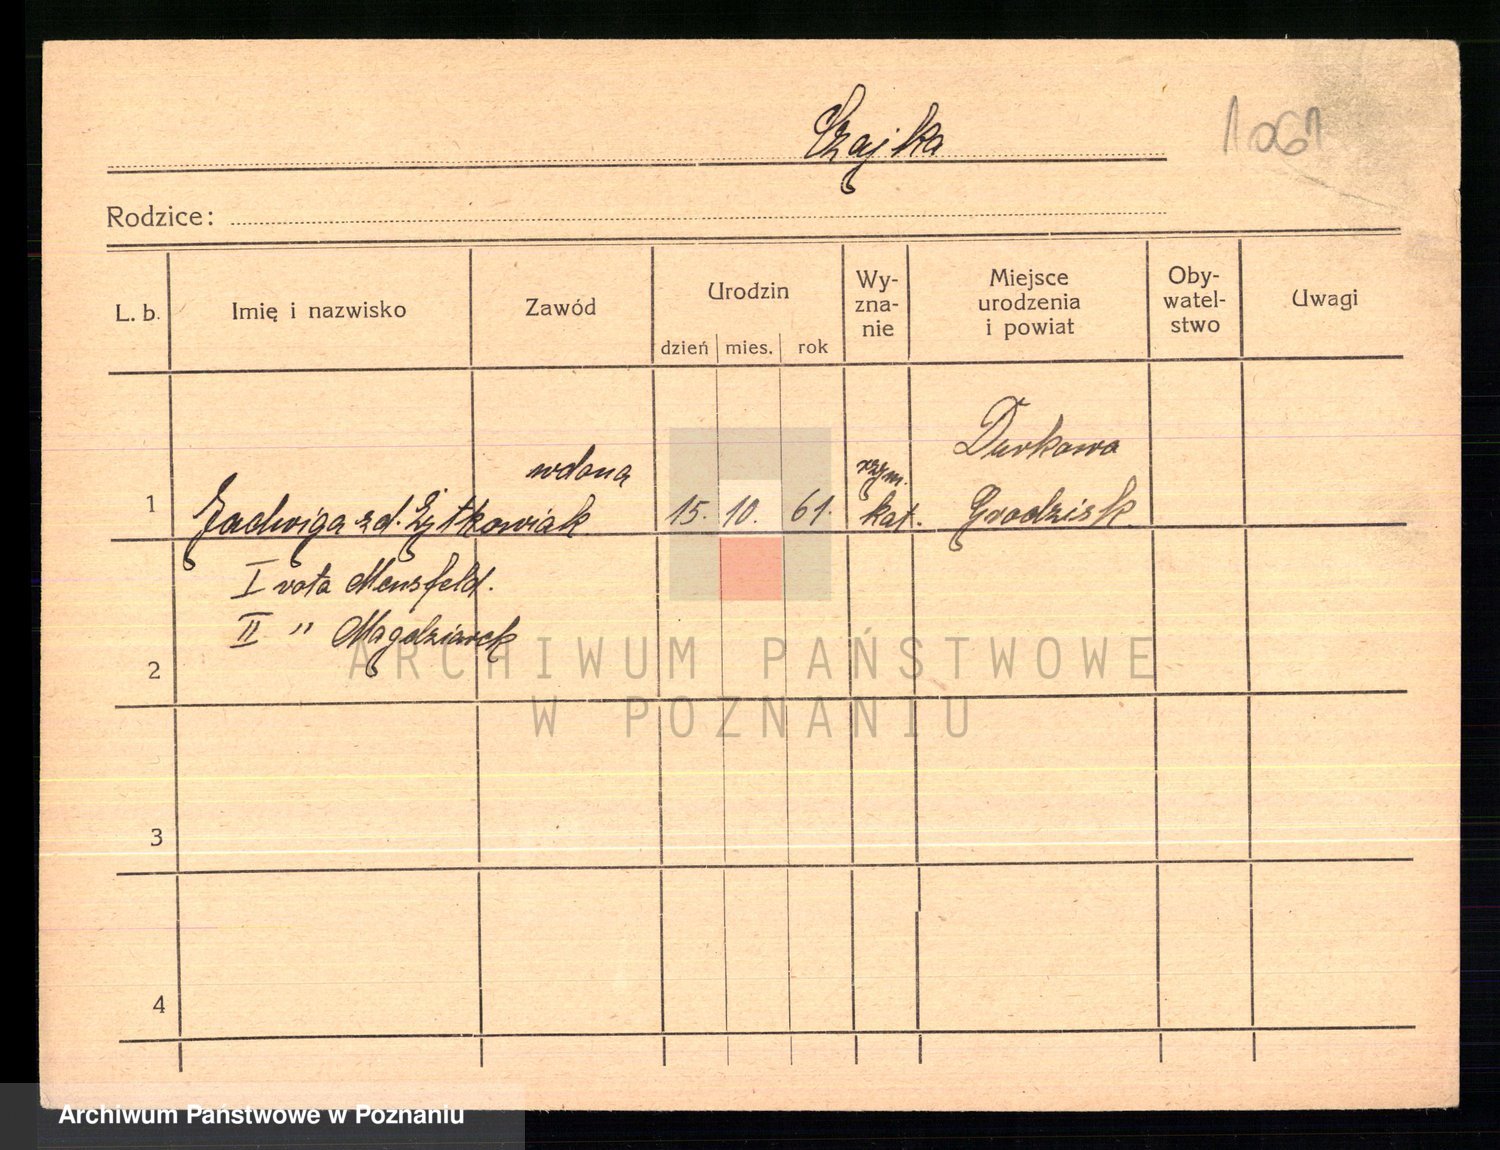 Czajka
1061
Rodzice:
L. b. Imię i nazwisko Zawód Urodzin dzień mies. rok Wy-zna-nie Miejsce urodzenia i powiat Oby-watel-stwo Uwagi
wdowa rzym. Durkowo
1 Jadwiga zd. Żytkowiak 15. 10. 61. kat. Grodzisk
I vota Mensfeld.
II " Magdziarek
2
3
4
ARCHIWUM PAŃSTWOWE
W POZNANIU
Archiwum Państwowe w Poznaniu